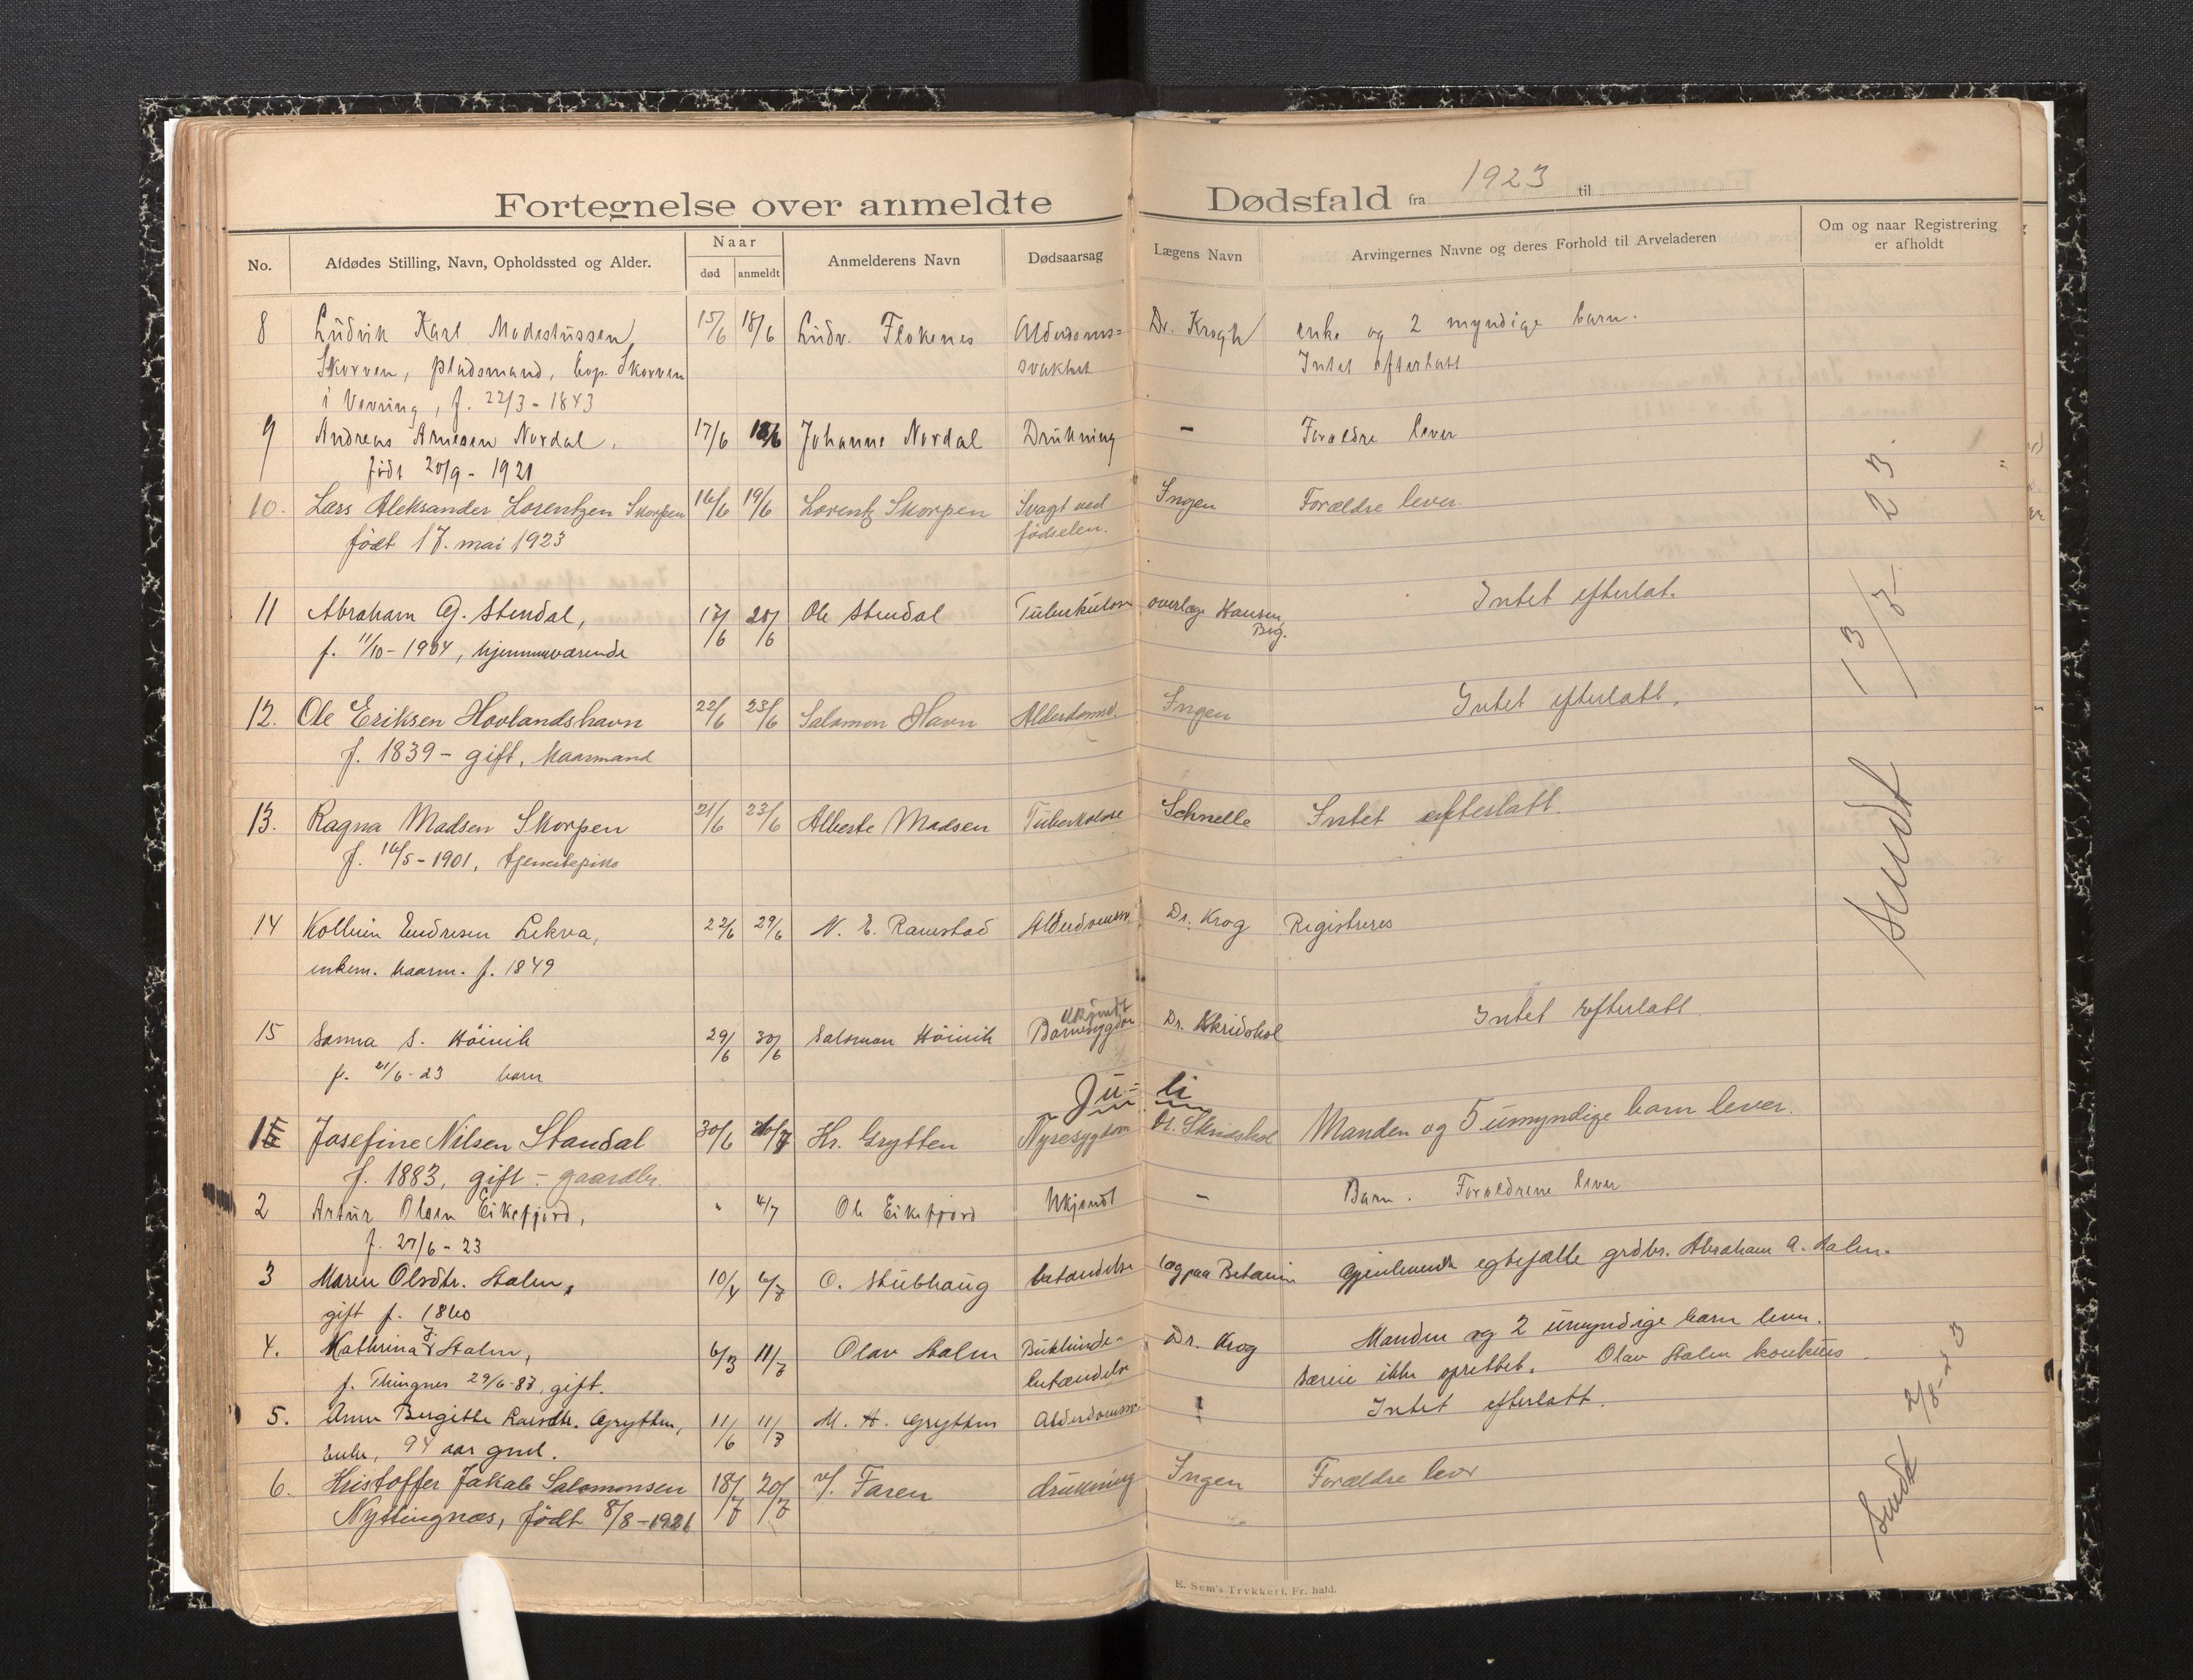 Fortegnelse over anmeldte Dødsfald fra 1923 til
No. Afdødes Stilling, Navn, Opholdssted og Alder. Naar død anmeldt Anmelderens Navn Dødsaarsag Lægens Navn Arvingernes Navne og deres Forhold til Arveladeren Om og naar Registrering er afholdt
8 Ludvik Karl Modestussen 15/6 18/6 Ludv. Flokenes Alderdoms= Dr. Krogh enke og 2 myndige barn.
Skorven, pladsmand, bop. Skorven svakhet Intet efterlatt
i Vevring, f. 22/3 - 1843
9 Andreas Arnesen Nordal, 17/6 18/6 Johanne Nordal Drukning - Forældre lever
født 20/9 - 1921
10. Lars Aleksander Lorentzen Skorpen 16/6 19/6 Lorentz Skorpen Svagt ved Ingen Forældre lever.
født 17. mai 1923 fødselen.
11 Abraham G. Stendal, 17/6 20/6 Ole Stendal Tuberkulose overlæge Hansen, Intet efterlat.
f. 11/10 - 1904, hjemmeværende Brg.
12. Ole Eriksen Hovlandshavn 22/6 23/6 Salamon Havn Alderdomsv. Ingen Intet efterlatt.
f. 1839 - gift, kaarmand
13. Ragna Madsen Skorpen 21/6 23/6 Alberte Madsen Tuberkolose Schnelle Intet efterlatt.
f. 16/5 - 1901, tjenestepike
14 Kolbein Endresen Lekva, 22/6 29/6 N. E. Ramstad Alderdomssv. Dr. Krog Registreres
enkem. kaarm. f. 1849
15 Sanna S. Høivik 29/6 30/6 Salomon Høivik Barnesygdom ukjendt Dr. Skridshol Intet efterlatt.
f. 21/6 - 23 barn
Ju= li
1 Josefine Nilsen Standal 30/6 Kr. Grytten Nyresygdom Dr. Skridshol Manden og 5 umyndige barn lever.
f. 1883, gift - gaardbr.
2 Artur Olsen Eikefjord, " 4/7 Ole Eikefjord Ukjendt - Barn. Forældrene lever
f. 27/6 - 23
3 Maren Olsdtr. Stalen, 10/4 6/7 O. Stubhaug betændelse læg paa Betanien Gjenlevende egtefælle grdbr. Abraham A. Stalen.
gift f. 1860
4. Kathrina J. Stalen, 6/3 11/7 Olav Stalen Bukhinde= Dr. Krog Manden og 2 umyndige barn lever.
f. Thingnes 29/6-87, gift. betændelse Særeie ikke oprettet. Olav Stalen konkurs
5. Anne Bergitte Larsdtr. Grytten, 11/6 11/7 M. A. Grytten Alderdomssv. Intet efterlatt.
Enke, 94 aar gml.
6. Kristoffer Jakob Salomonsen 18/7 20/7 Faren drukning Ingen Forældre lever
Nyttingnæs, født 8/8 - 1921
Sendt 13/7 23
Sendt 2/8-23
E. Sem's Trykkeri, Fr.hald.